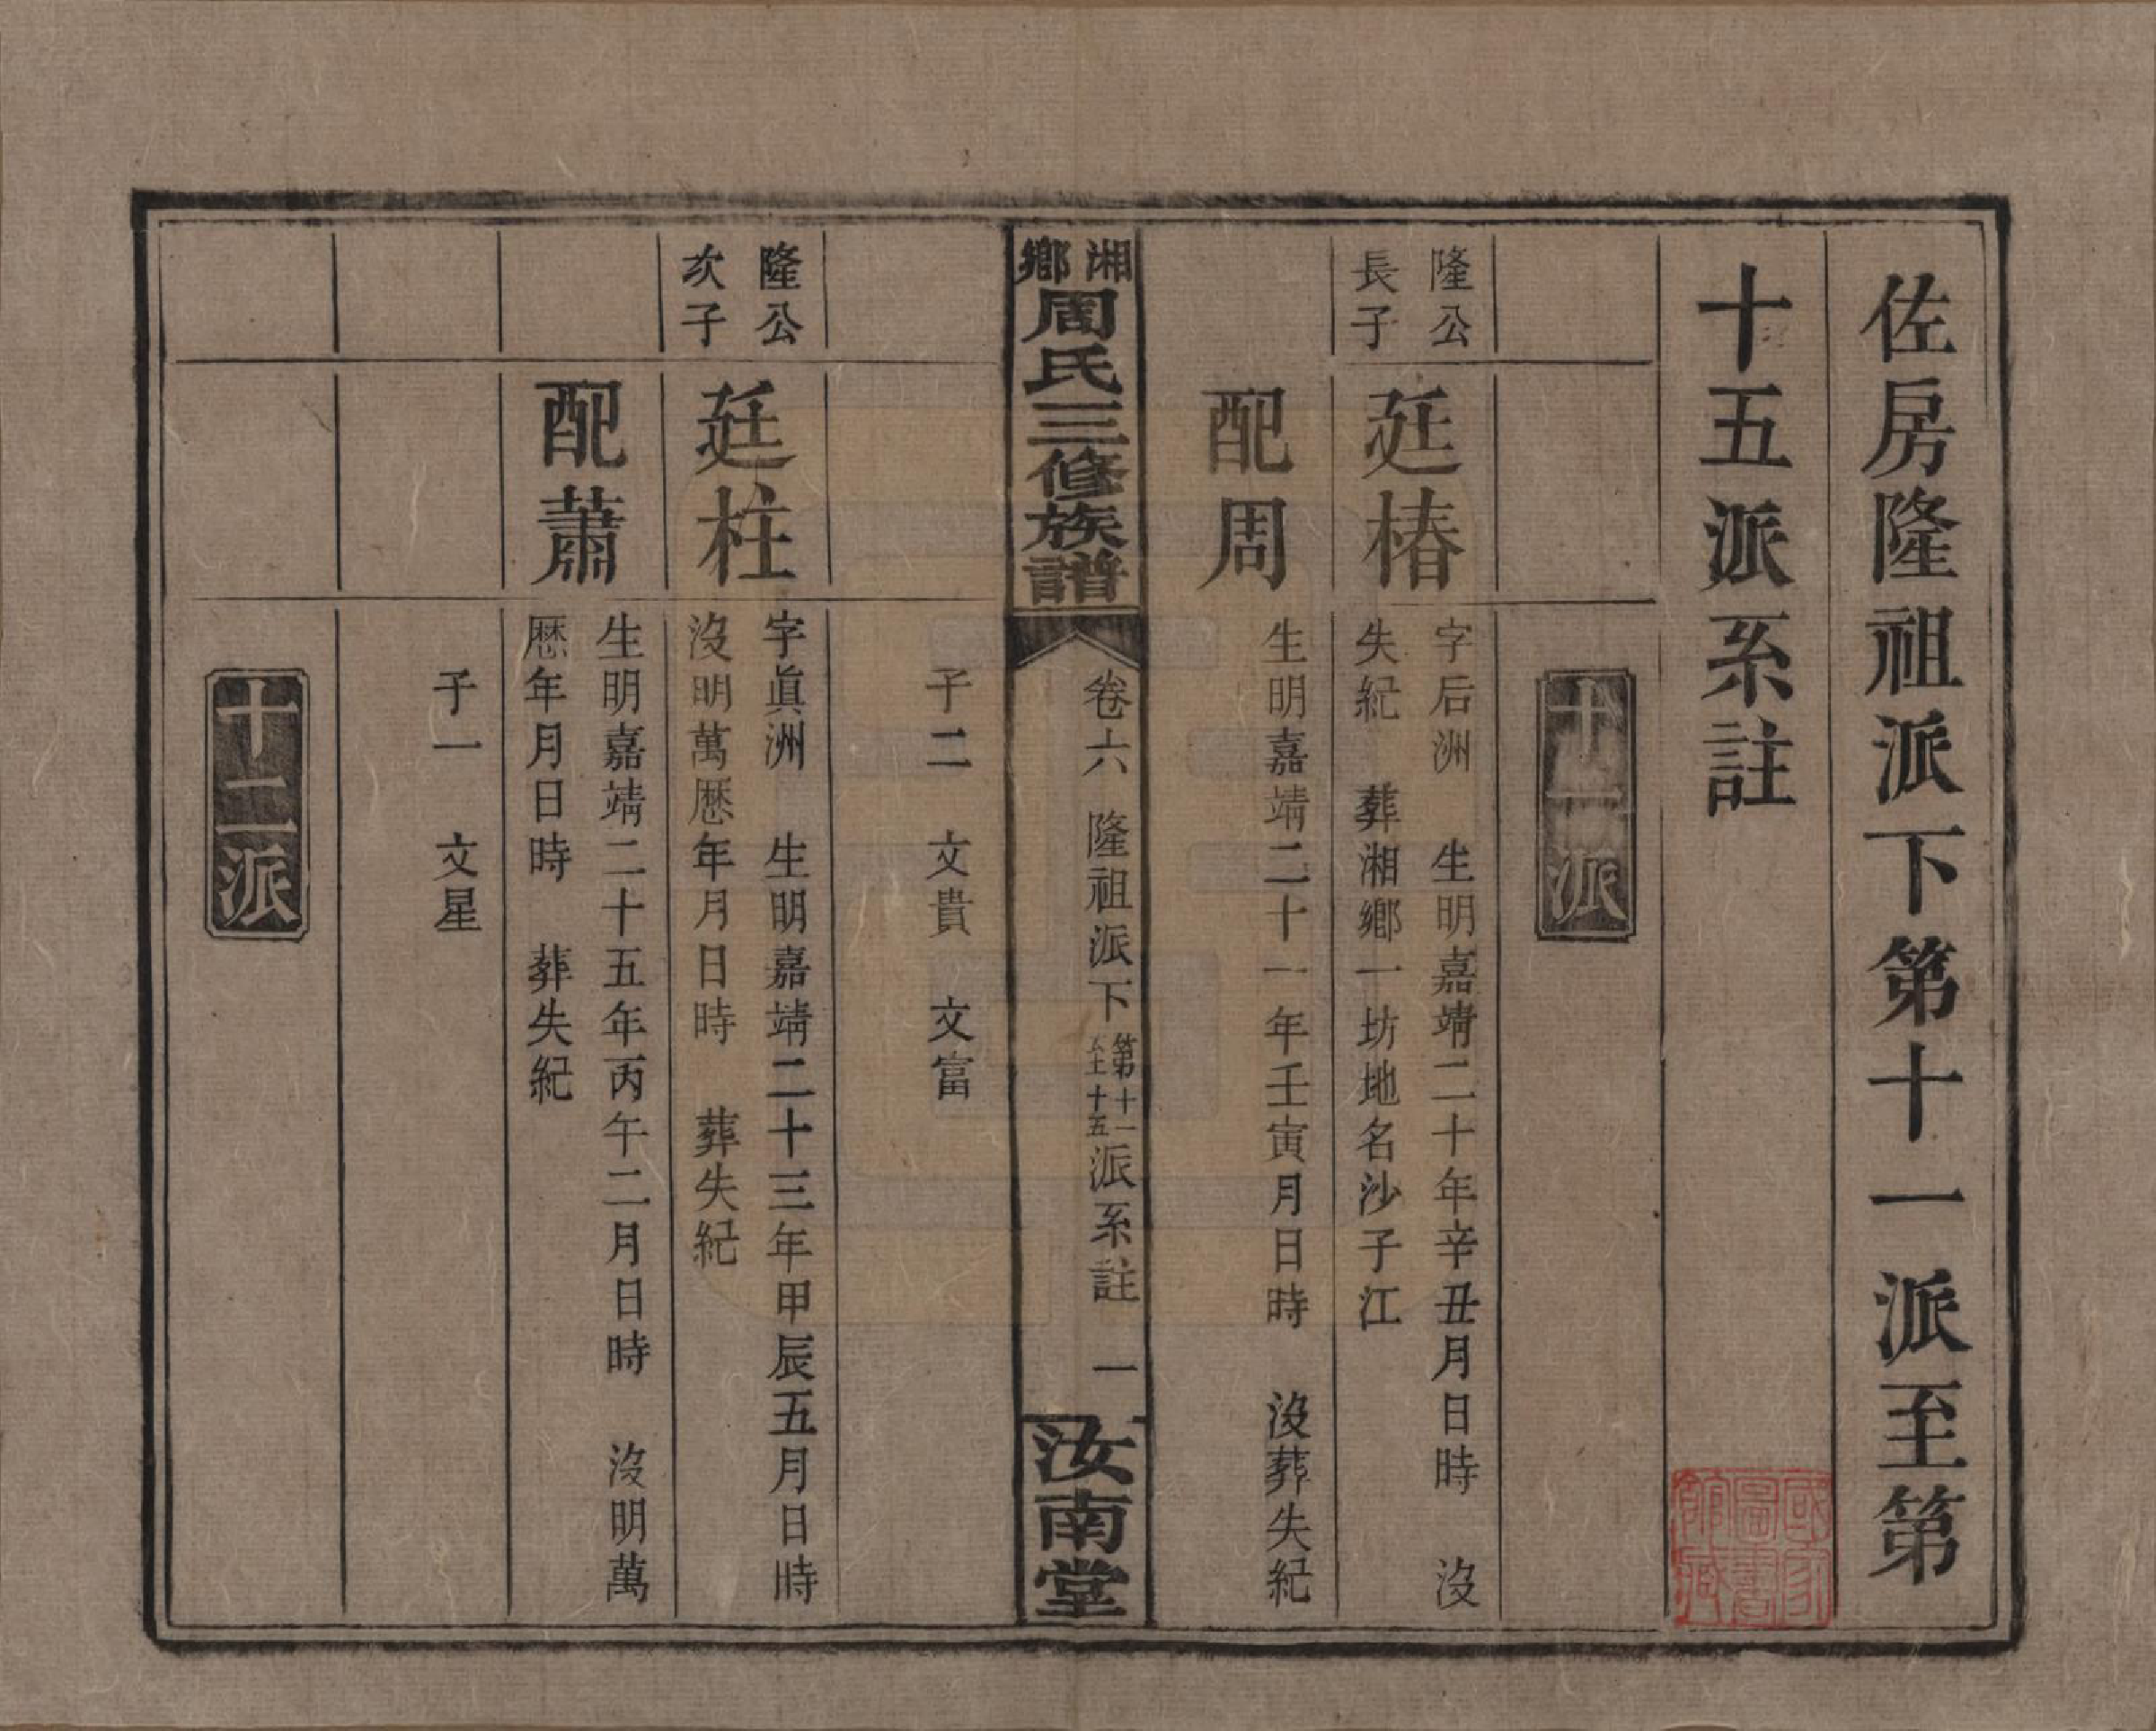 佐房隆祖派下第十一派至第
十五派系註
十一派
隆公
長子
廷椿
字后洲　生明嘉靖二十年辛丑月日時　沒
失紀　葬湘鄉一坊地名沙子江
配周
生明嘉靖二十一年壬寅月日時　沒葬失紀
湘鄉
周氏三修族譜
卷六　隆祖派下第十一至十五派系註　一
汝南堂
子二　文貴　文富
隆公
次子
廷柱
字眞洲　生明嘉靖二十三年甲辰五月日時
沒明萬歷年月日時　葬失紀
配蕭
生明嘉靖二十五年丙午二月日時　沒明萬
歷年月日時　葬失紀
子一　文星
十二派
國家
圖書
館藏